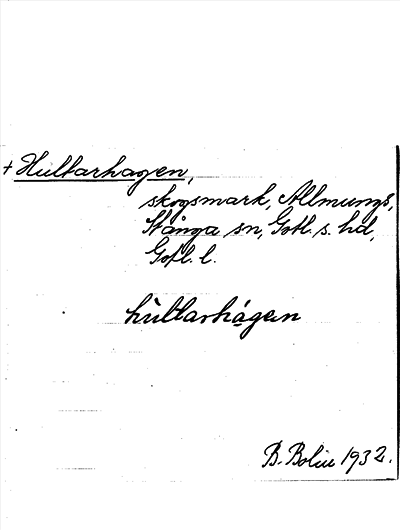 + Hultarhagen,
skogsmark, Allmungs,
Stånga sn, Gotl. s. hd,
Gotl. l.
hùltarhágen
B. Bolin 1932.